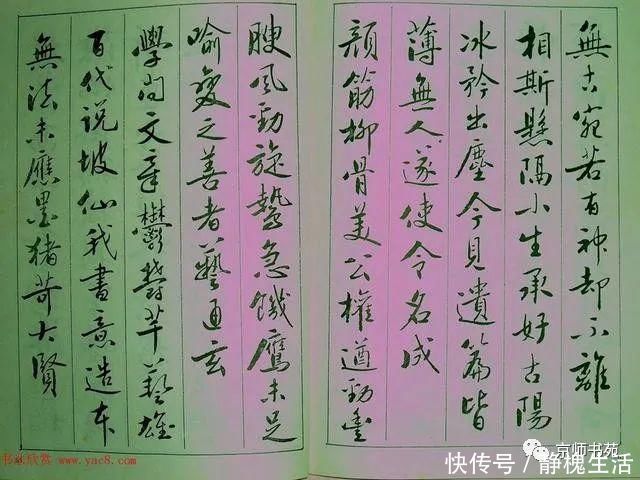 無古宛若有神却不離
相斯懸隔小生承好古陽
冰矜出塵今見遺篇皆
薄無人遂使令名成
顔筋柳骨美公權遒勁豐
腴風勁旋鷙急饑鷹未足
喻變之善者藝通玄
學問文章鬱勃芊藝雄
百代说坡仙我書意造本
無法未應墨猪苛大賢
书法欣赏 www.yac8.com
京师书苑
快传号／静槐生活